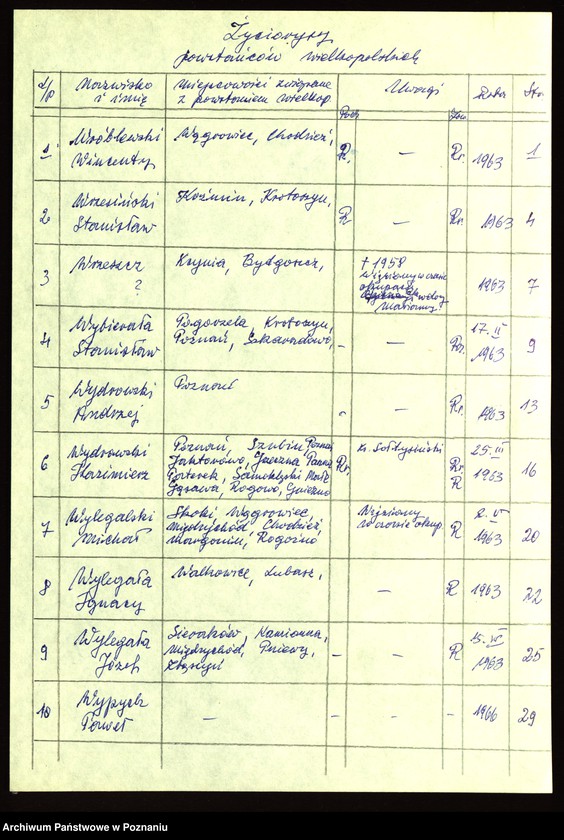 Życiorysy
powstańców wielkopolskich
L/p Nazwisko i imię Miejscowości związane z powstaniem wielkop. Uwagi Data Str.
1 Wróblewski Wincenty Wągrowiec, Chodzież, R. — Rr. 1963 1
2 Wrzesiński Stanisław Koźmin, Krotoszyn, R — Rr. 1963 4
3 Wrzeszcz ? Kcynia, Bydgoszcz, † 1958 Więziony w czasie okupacji 1963 7
4 Wybierała Stanisław Pogorzela, Krotoszyn, Poznań, — — 17. II 1963 9
5 Wydrowski Andrzej Poznań - Rr. 1963 13
6 Wydrowski Kazimierz Poznań, Szubin, Rogowo, Gniezno Rr. ks. Sołtysiński Rr. R 25. III 1963 16
7 Wylegalski Michał Skoki, Wągrowiec, Międzychód, Chodzież, Margonin, Rogoźno Więziony w czasie okup. R 1963 20
8 Wylegała Ignacy Walkowice, Lubasz, — R 1963 22
9 Wylegała Józef Sieraków, Kamionna, Międzychód, Pniewy, Zbąszyń — — R 1963 25
10 Wypych Paweł — - — - 1966 29
Archiwum Państwowe w Poznaniu